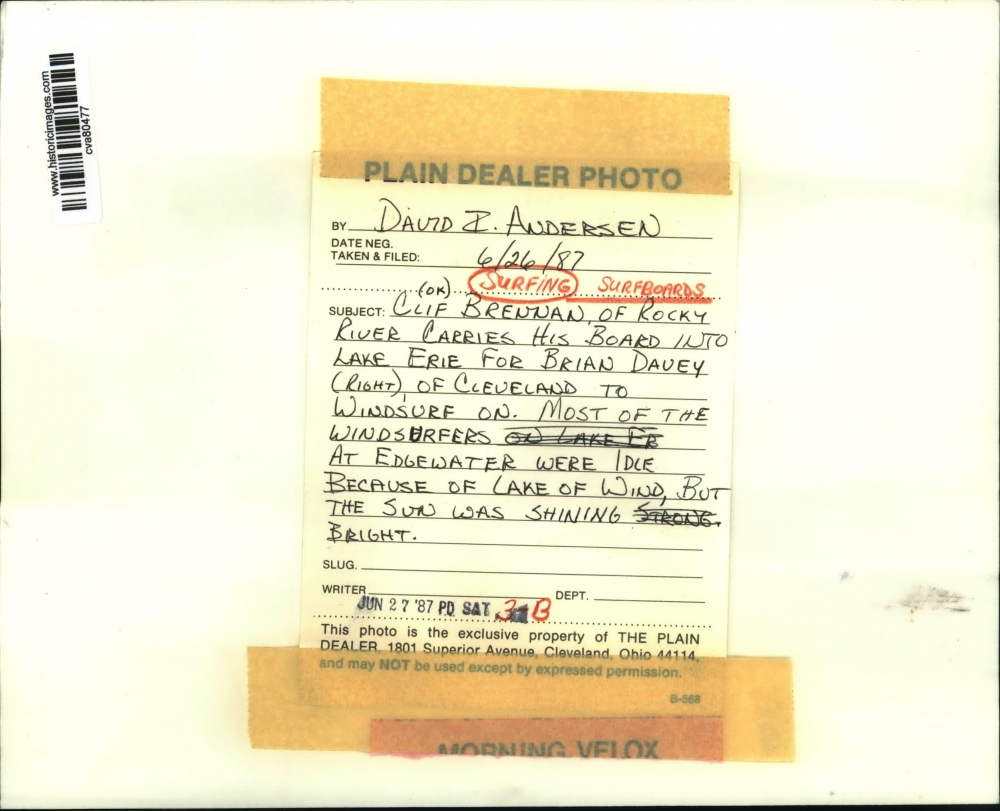 www.historicimages.com
cva80477
PLAIN DEALER PHOTO
BY DAVID I. ANDERSEN
DATE NEG.
TAKEN & FILED: 6/26/87
(OK) SURFING SURFBOARDS
SUBJECT: CLIF BRENNAN, OF ROCKY
RIVER CARRIES HIS BOARD INTO
LAKE ERIE FOR BRIAN DAVEY
(RIGHT), OF CLEVELAND TO
WINDSURF ON. MOST OF THE
WINDSURFERS ON LAKE ER
AT EDGEWATER WERE IDLE
BECAUSE OF LAKE OF WIND, BUT
THE SUN WAS SHINING STRONG.
BRIGHT.
SLUG.
WRITER DEPT.
JUN 27 '87 PD SAT 3-B
This photo is the exclusive property of THE PLAIN
DEALER, 1801 Superior Avenue, Cleveland, Ohio 44114,
and may NOT be used except by expressed permission.
B-568
MORNING VELOX